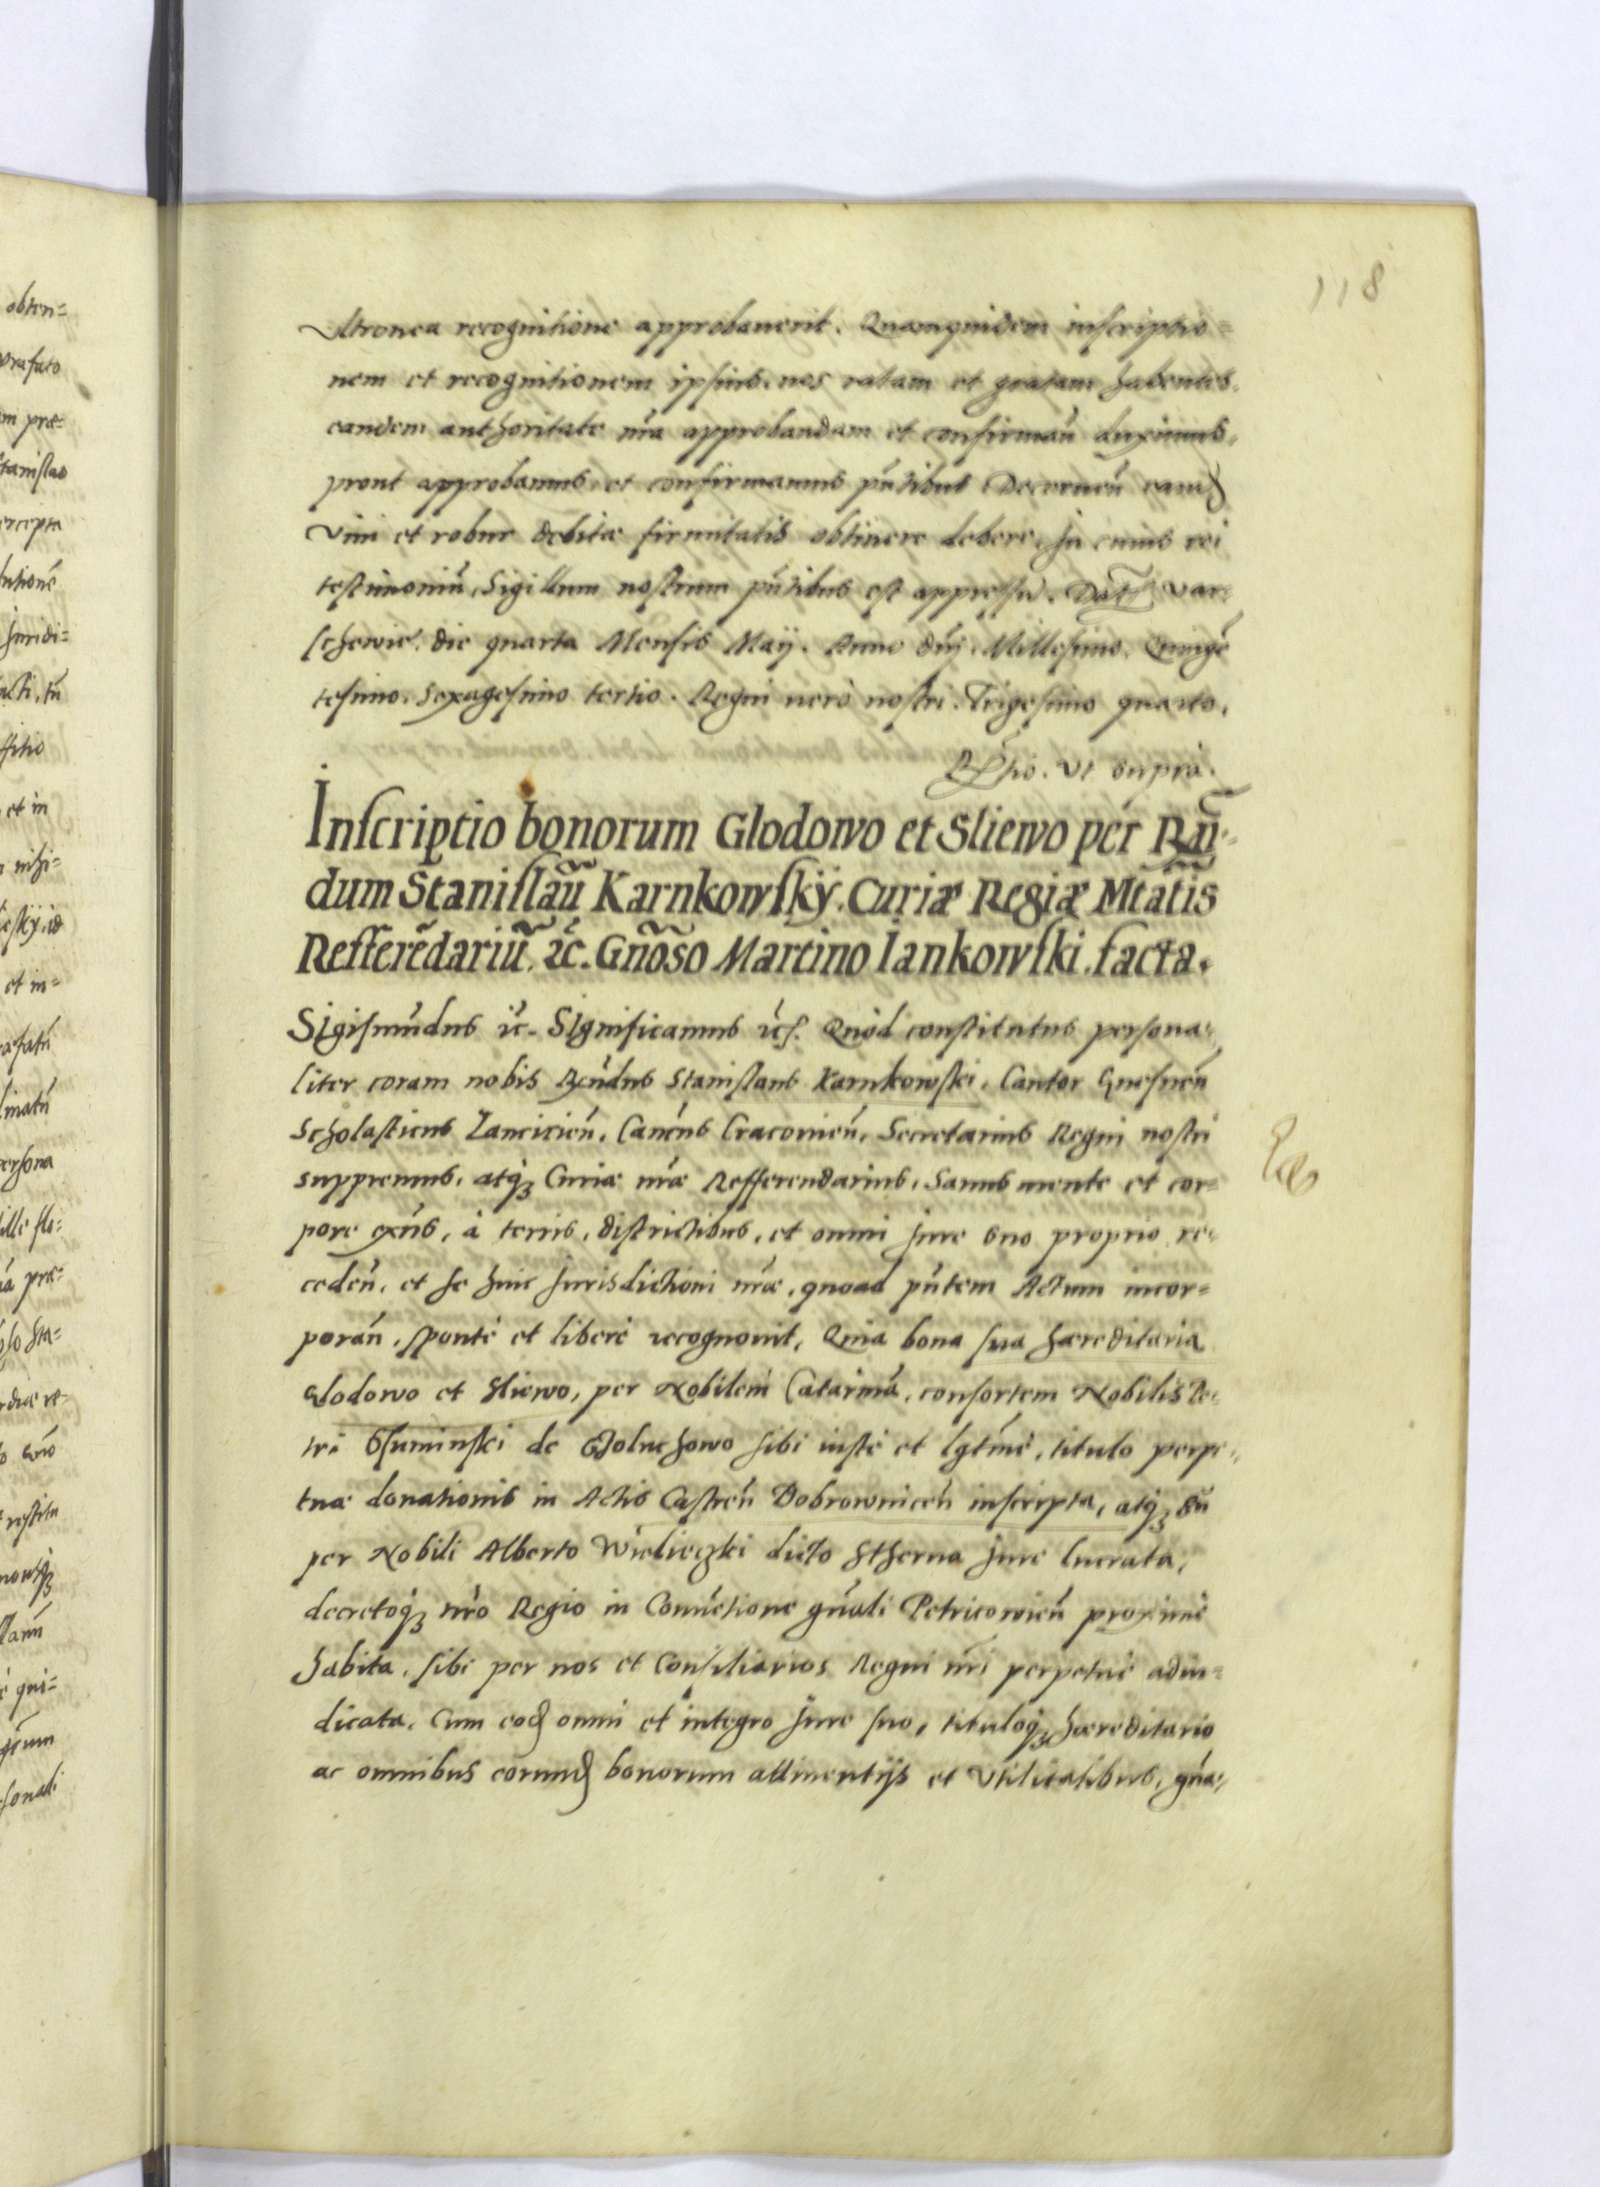 118
Vltronea recognitione approbauerit. Quamquidem inscriptio=
nem et recognitionem ipsius, nos ratam et gratam habentes,
eandem authoritate nr̃a approbandam et confirman̄ duximus,
prout approbamus, et confirmamus pn̄tibus Decernen̄ eamd
vim et robur debitæ firmitatis obtinere debere, In cuius rei
testimoniū, Sigillum nostrum pn̄tibus est appressū. Dat Var=
schewie die quarta Mensis Maij. Anno dn̄j. Millesimo. Quingē
tesimo. Sexagesimo tertio. Regni uero nostri. Trigesimo quarto.
Rłtio. Vt supra.
Inscriptio bonorum Glodowo et Sliewo per Rn̄=
dum Stanislaū Karnkowskÿ. Curiæ Regiæ Mtātis
Refferēdariū. ꝛc̄. Gn̄oso Martino Iankowski. facta.
Sigismūdus ꝛc̄. Significamus ꝛc̄. Quòd constitutus persona=
liter coram nobis Rn̄dus Stanislaus Karnkowski, Cantor Gnesnen̄
Scholasticus Lancicien̄, Can̄cus Cracouien̄, Secretarius Regni nostri
suppremus, atq̃ Curiæ nr̃æ Refferendarius, Sanus mente et cor=
pore exn̄s, à terris, districtibus, et omni Jure suo proprio re=
ceden̄, et se huic Jurisdictioni nr̃æ, quoad pn̄tem Actum incor=
poran̄, spontè et liberè recognouit, Quia bona sua hæreditaria
Glodowo et Sliewo, per Nobilem Catarinā, consortem Nobilis Pe=
tri Osuminski de Goluchowo sibi iustè et lgt̄mè, titulo perpe=
tuæ donationis in Actis Castren̄ Dobrownicen̄ inscripta, atq̃ sū
per Nobili Alberto Wieliczki dicto Stherna Jure lucrata,
decretoq̃ nr̃o Regio in Conue̅tione gn̄ali Petricouien̄ proximè
habita, sibi per nos et Consiliarios Regni nr̃i perpetuè adiu=
dicata, Cum eod omni et integro Jure suo, tituloq̃ hæreditario
ac omnibus eorumd bonorum attinentijs et Vtilitatibus, gn̄a=